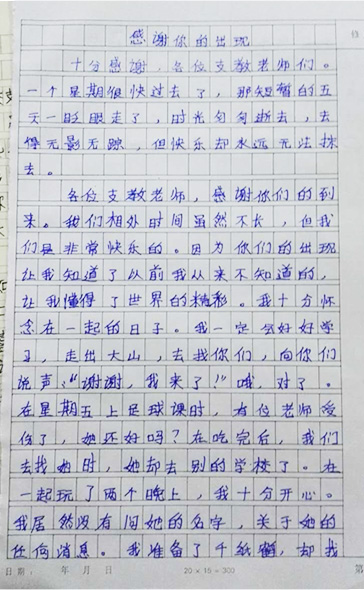 感谢你的出现
十分感谢，各位支教老师们。
一个星期很快过去了，那短暂的五
天一眨眼走了，时光匆匆逝去，去
得无影无踪，但快乐却永远无法抹
去。
各位支教老师，感谢你们的到
来。我们相处时间虽然不长，但我
们是非常快乐的。因为你们的出现
让我知道了以前我从来不知道的，
让我懂得了世界的精彩。我十分怀
念在一起的日子。我一定会好好学
习，走出大山，去找你们，向你们
说声："谢谢，我来了！"哦，对了。
在星期五上足球课时，有位老师受
伤了，她还好吗？在吃完后，我们
去找她时，她却去别的学校了。在
一起玩了两个晚上，我十分开心。
我居然没有问她的名字，关于她的
任何消息。我准备了千纸鹤，却我
日期： 年 月 日 20×15=300 第